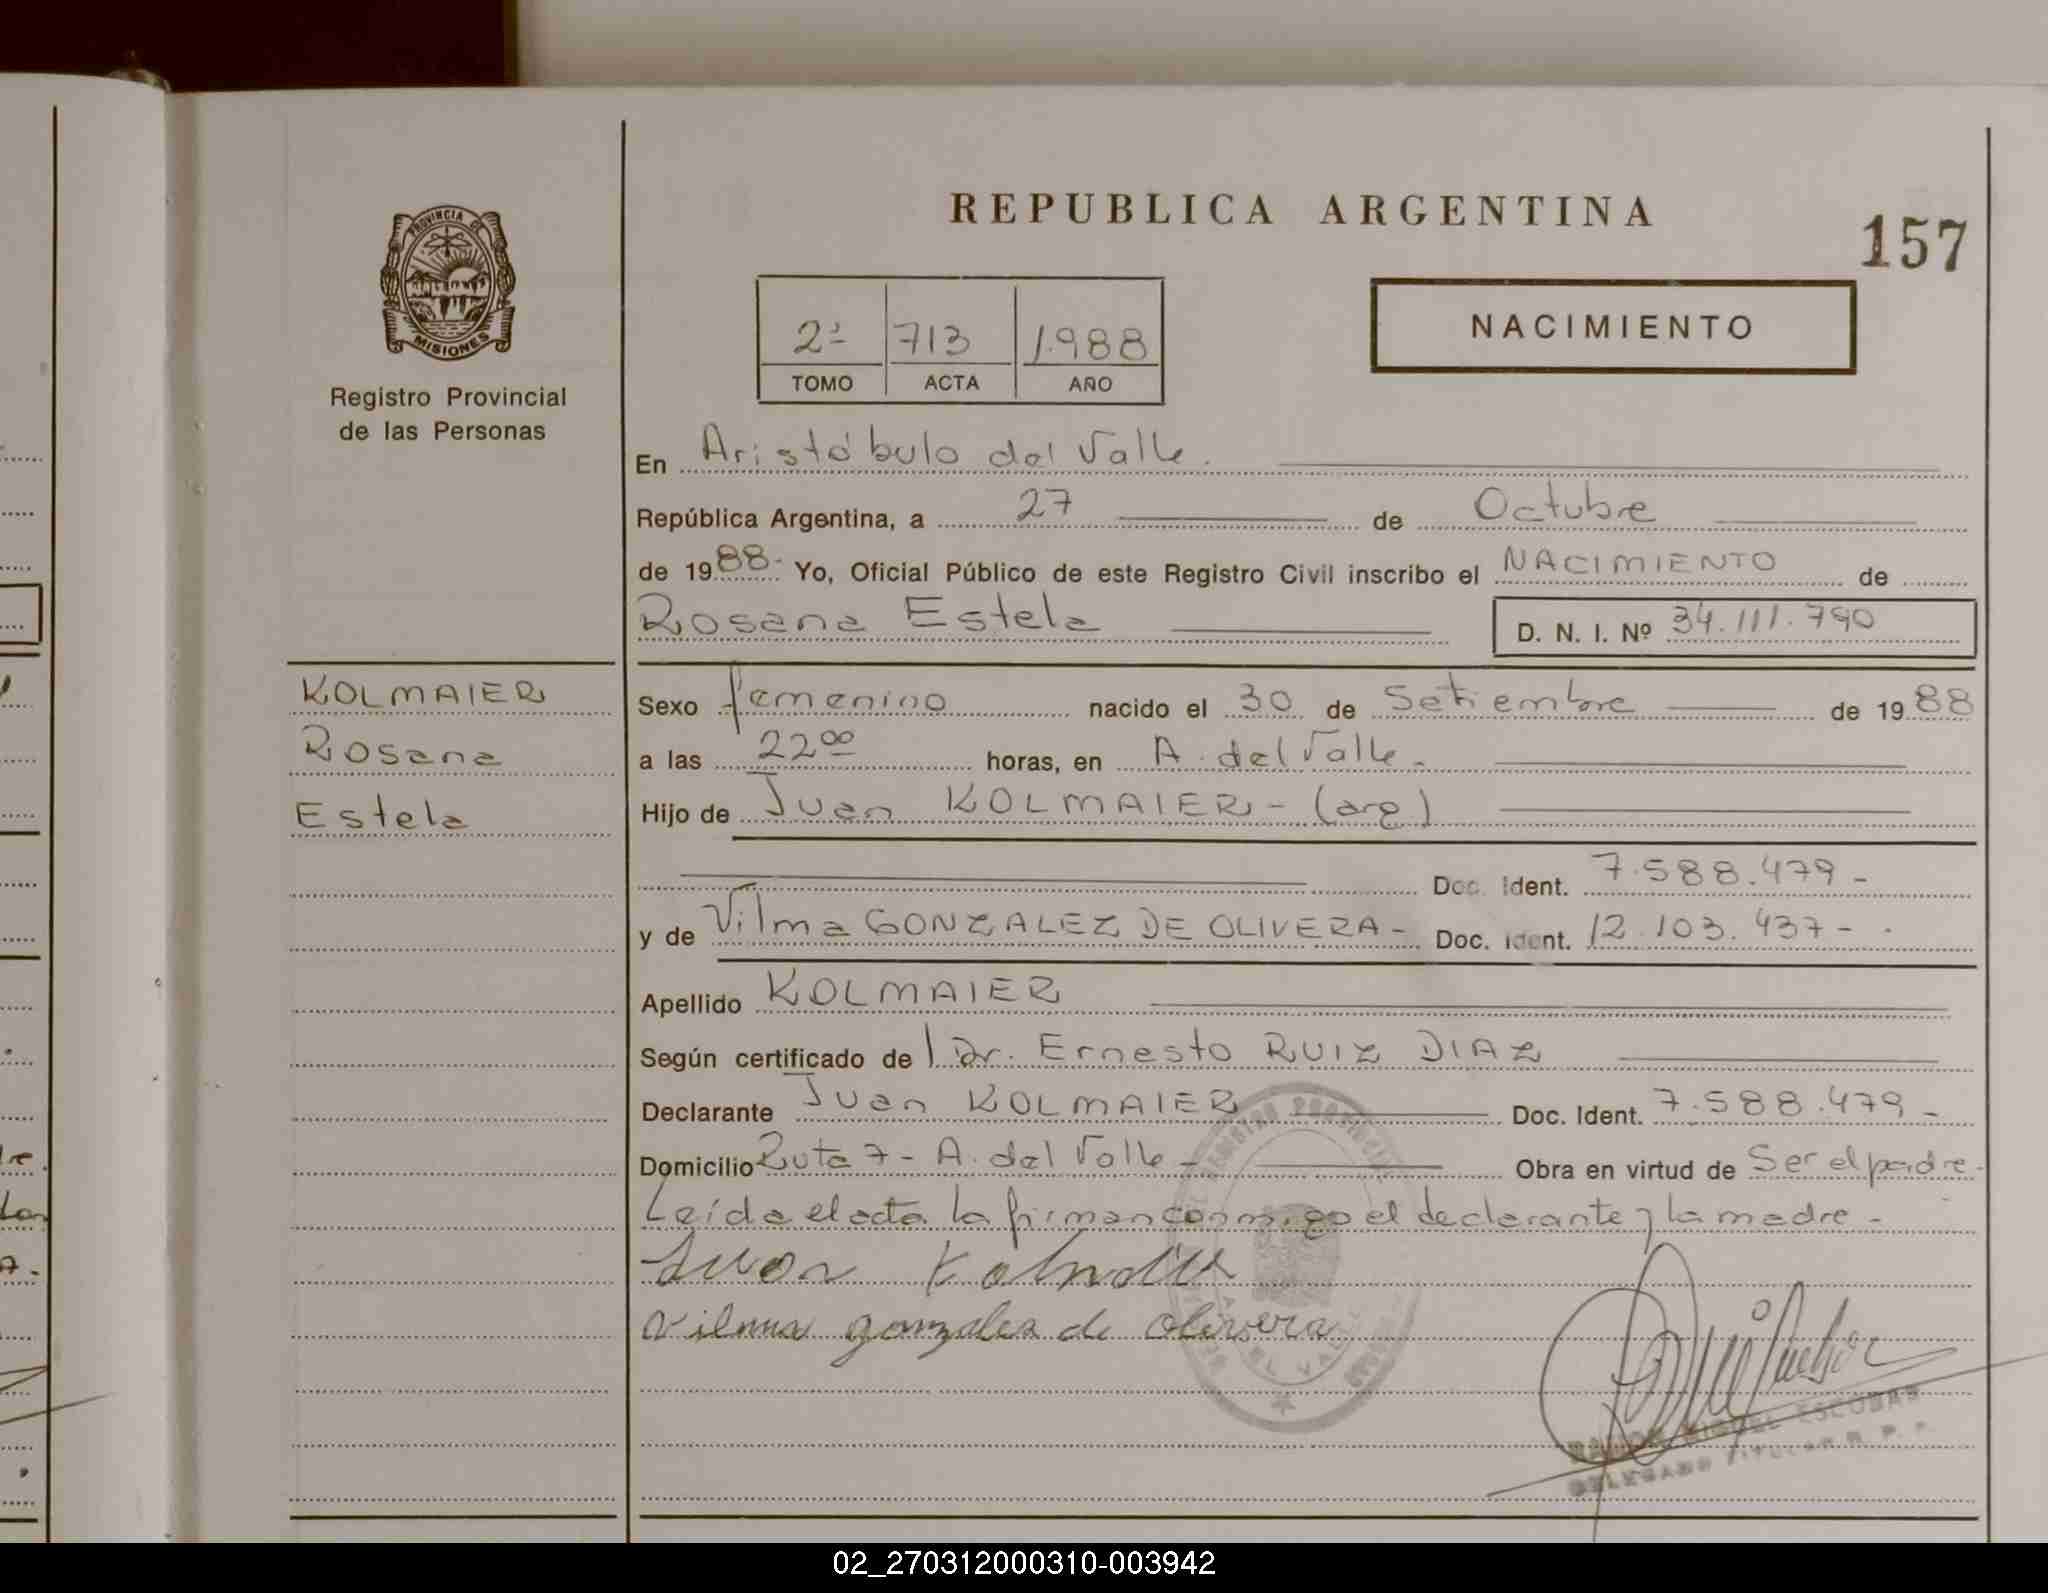 REPUBLICA ARGENTINA
157
PROVINCIA DE
MISIONES
Registro Provincial
de las Personas
2º 713 1.988
TOMO ACTA AÑO
NACIMIENTO
En Aristóbulo del Valle.
República Argentina, a 27 de Octubre
de 1988- Yo, Oficial Público de este Registro Civil inscribo el NACIMIENTO de
Rosana Estela D. N. I. Nº 34.111.790
KOLMAIER
Rosana
Estela
Sexo femenino nacido el 30 de Setiembre de 1988
a las 22ºº horas, en A. del Valle.
Hijo de Juan KOLMAIER - (arg)
Doc. Ident. 7.588.479-
y de Vilma GONZALEZ DE OLIVERA- Doc. Ident. 12.103.437-
Apellido KOLMAIER
Según certificado del Dr. Ernesto RUIZ DIAZ
Declarante Juan KOLMAIER Doc. Ident. 7.588.479-
Domicilio Ruta 7 - A. del Valle - Obra en virtud de Ser el padre-
Leída el acta la firman conmigo el declarante y la madre-
Juan
Vilma gonzales de olivera
RAMON MIGUEL ESCOBAR
DELEGADO TITULAR R. P. P.
02_270312000310-003942